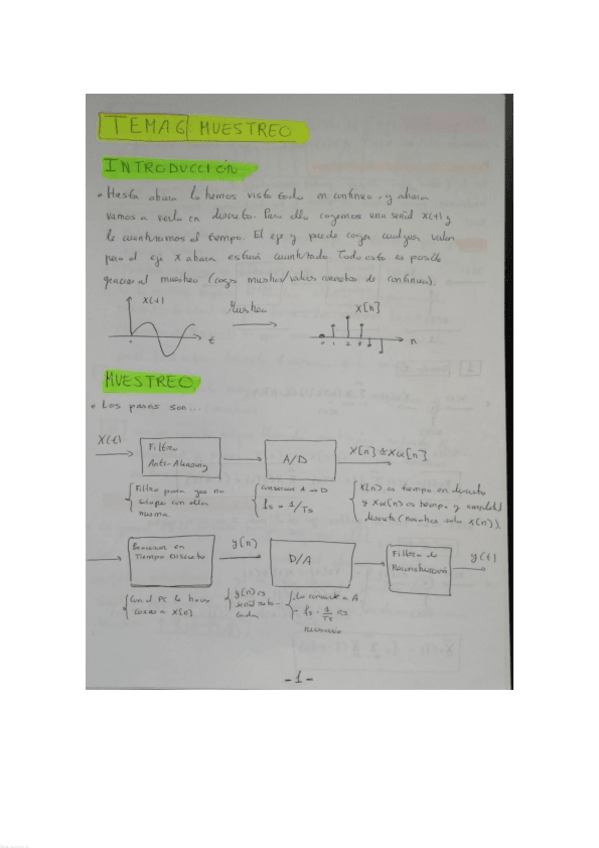 TEMA 6 MUESTREO
INTRODUCCIÓN
• Hasta ahora lo hemos visto todo en continuo, y ahora
vamos a verlo en discreto. Para ello cogemos una señal X(t) y
le cuantizamos el tiempo. El eje y puede coger cualquier valor
pero el eje X ahora estará cuantizado. Todo esto es posible
gracias al muestreo (coger muestras/valores concretos de continuo).
X(t)
Muestreo
X[n]
t
0 1 2 3 4 5
n
MUESTREO
• Los pasos son...
X(t)
Filtro
Anti-Aliasing
A/D
X[n] ≠ Xα[n]
Filtro para que no
solape con ella
misma.
conversor A → D
fs = 1/Ts
X[n] es tiempo en discreto
y Xα[n] es tiempo y amplitud
discreta (nosotros solo X[n]).
Procesar en
Tiempo Discreto
y[n]
D/A
Filtro de
Reconstrucción
y(t)
Con el PC le haces
cosas a X[n]
y[n] es
señal
Lo convierte a A
fs = 1/Ts es
necesario
-1-